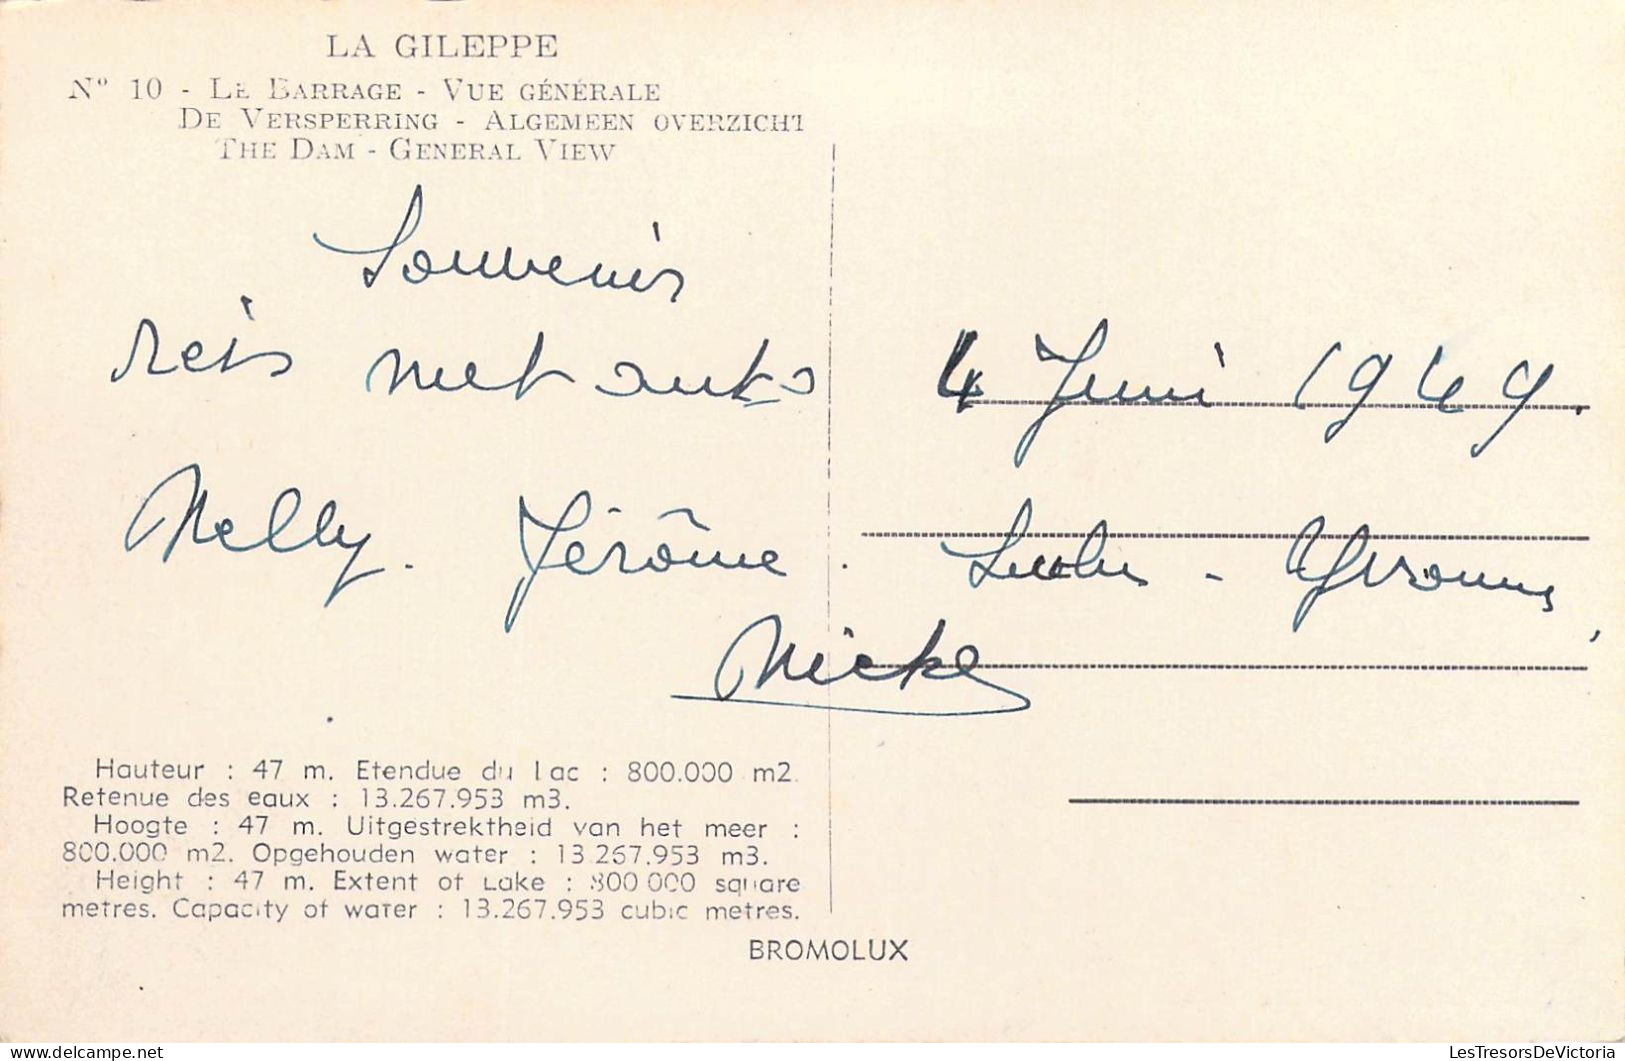 LA GILEPPE
N° 10 - LE BARRAGE - VUE GÉNÉRALE
DE VERSPERRING - ALGEMEEN OVERZICHT
THE DAM - GENERAL VIEW
Souvenir
reis met auto
4 Juni 1949.
Nelly. Jérôme. - Yvonne,
Nicke
Hauteur : 47 m. Etendue du Lac : 800.000 m2.
Retenue des eaux : 13.267.953 m3.
Hoogte : 47 m. Uitgestrektheid van het meer :
800.000 m2. Opgehouden water : 13.267.953 m3.
Height : 47 m. Extent of Lake : 800.000 square
metres. Capacity of water : 13.267.953 cubic metres.
BROMOLUX
LesTresorsDeVictoria